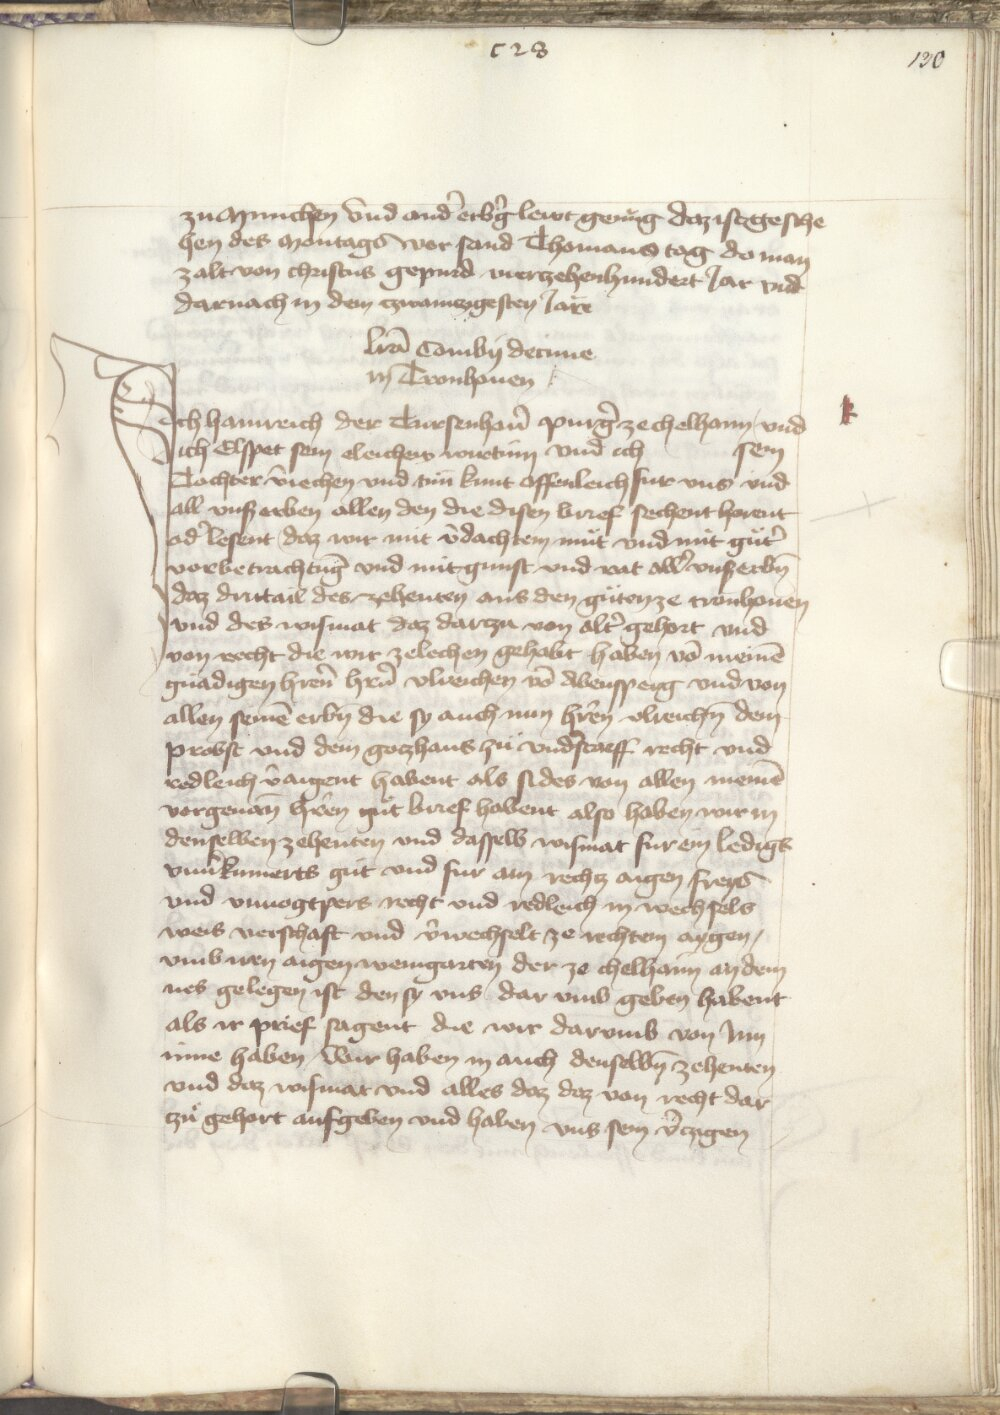 c28
130
zu Munchen vnd and̉ erbg̉ lewt genüg daz ist gesche
hen des Montags vor sand Thomans tag do man
zalt von christus gepurd vierzehenhundert Jar vnd
darnach in dem zwainczigesten Jare
lrã Comby decime
in Tronhouen
Ich hainreich der Tursenhau̇̉ purg̉ ze chelhaim vnd
ich Elspet sein eleichew wirtinn vnd ich sein
Tochter v̉iechen vnd tün kunt offenleich fur vns vnd
all vnser̉ erben allen den die disen brief sechent horent
od̉ lesent daz wir mit v̉dachtem müt vnd mit güt̉
vorbetrachtung̃ vnd mit gunst vnd rat all̉ vns̉ erbn̄
daz dritail des zehenten aus den gütern ze tronhouen
vnd des wismat daz darczu von alt̉ gehort vnd
von recht die wir ze lechen gehabt haben võ meinē
gnadigen hren̉ hrn̉ vlreichen võ Abensperg vnd von
allen seinē erbn̄ die sy auch nun hr̉en vlreichn̄ dem
probst vnd dem gotzhaus zü vnd̉storff recht vnd
redleich v̉aigent habent als si des von allen meinē
vorgenan̄ hr̉en güt brief habent also haben wir in
denselben zehenten vnd dasselb wismat fur ein ledigs
vnủkumerts güt vnd fur ain rechtz aigen freys
vnd vnuogtpers recht vnd redleich in wechsels
weis verschaft vnd v̉wechselt ze rechtem aygen /
vmb iren aigen weingarten der ze chelhaim an dem
nes gelegen ist den sy vns dar vmb geben habent
als ir prief sagent die wir darvmb von Jnn
inne haben / Wir haben in auch denselbn̄ zehenten
vnd daz wismat vnd alles daz daz von recht dar
zü gehort aufgeben vnd haben vns sein v̉czigen